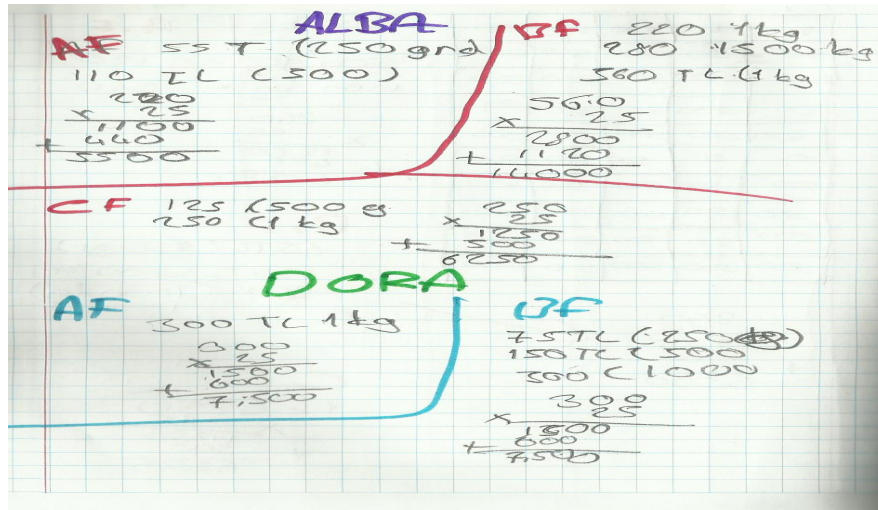 ALBA
AF 55 T (250 grd)
110 TL (500)
220
x 25
1100
+ 440
5500
BF 220 1kg
280 1500 kg
560 TL (1 kg
560
x 25
2800
+ 1120
14000
CF 125 (500 g
250 (1 kg
250
x 25
1250
+ 500
6250
DORA
AF
300 TL 1 kg
300
x 25
1500
+ 600
7.500
BF
75 TL (250
150 TL (500
300 (1000
300
x 25
1500
+ 600
7.500